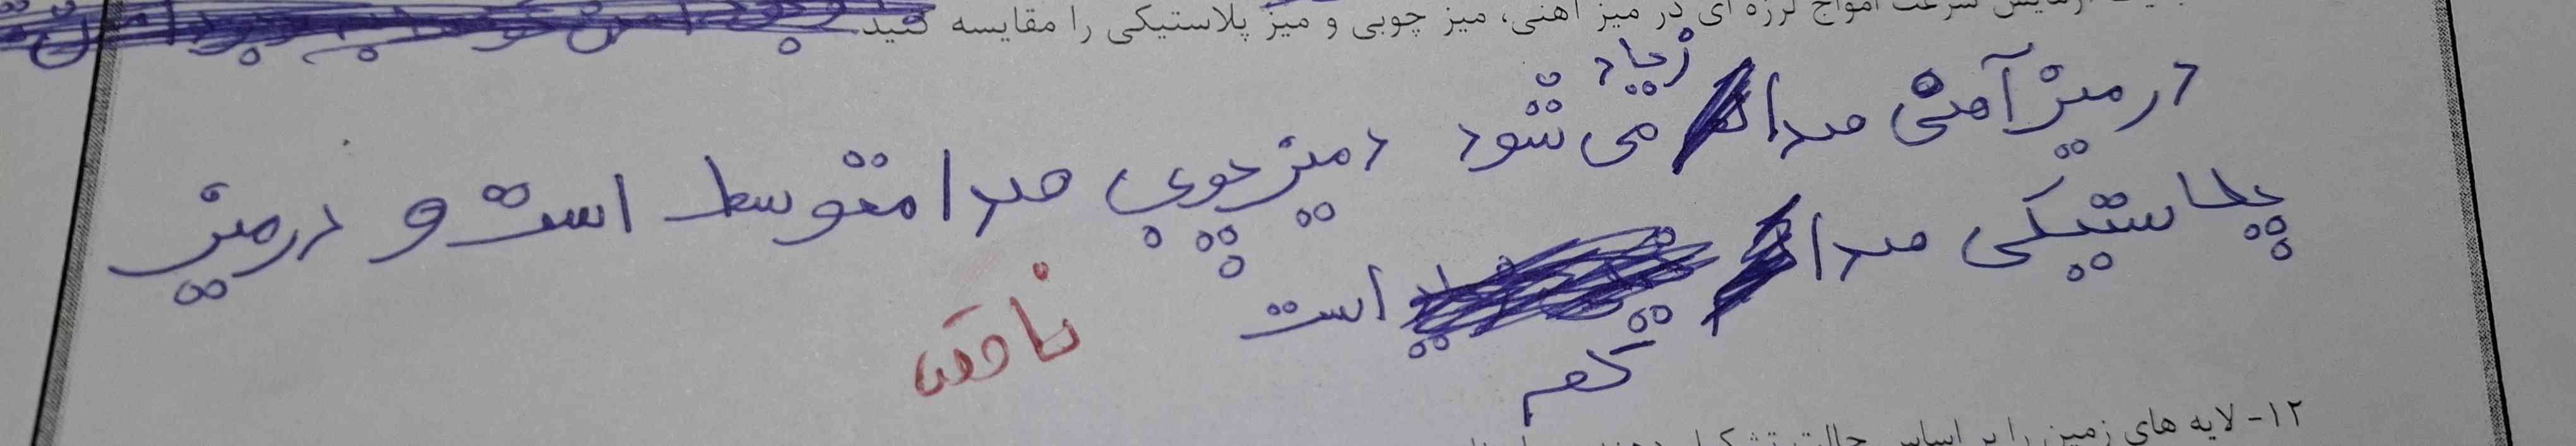 سرعت امواج لرزه ای در میز آهنی، میز چوبی و میز پلاستیکی را مقایسه کنید
زیاد
در میز آهنی صدا می شود در میز چوبی صدا متوسط است و در میز
پلاستیکی صدا است
کم
ناقص
۱۲- لایه های زمین را بر اساس حالت